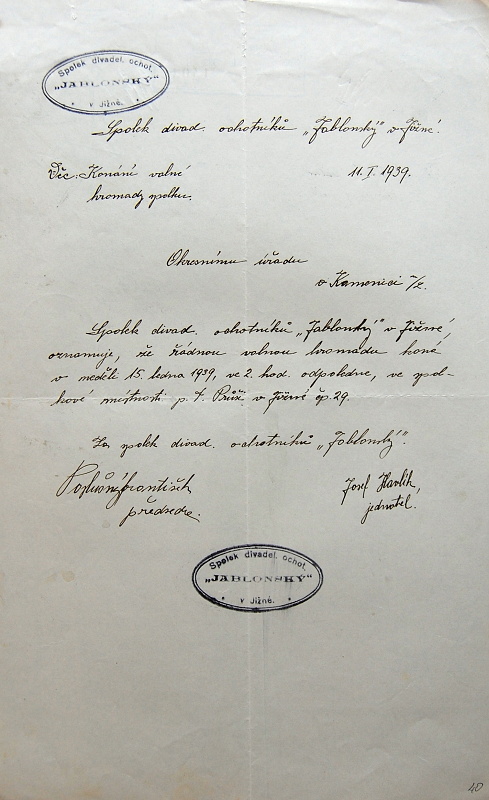 Spolek divadel. ochot.
„JABLONSKÝ"
v Jižné.
Spolek divad. ochotníků „Jablonský" v Jižné.
Věc: Konání valné
hromady spolku.
11. I. 1939.
Okresnímu úřadu
v Kamenici n/L.
Spolek divad. ochotníků „Jablonský" v Jižné,
oznamuje, že řádnou valnou hromadu koná
v neděli 15. ledna 1939, ve 2. hod. odpoledne, ve spol-
kové místnosti p. J. v Jižné čp. 29.
Za spolek divad. ochotníků „Jablonský".
František
předseda.
Josef Havlík
jednatel.
Spolek divadel. ochot.
„JABLONSKÝ"
v Jižné.
40